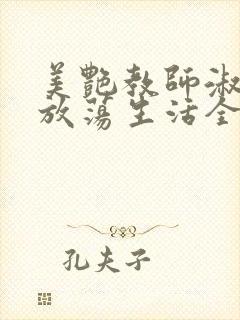 美艷教師淑
放蕩生活全
孔夫子